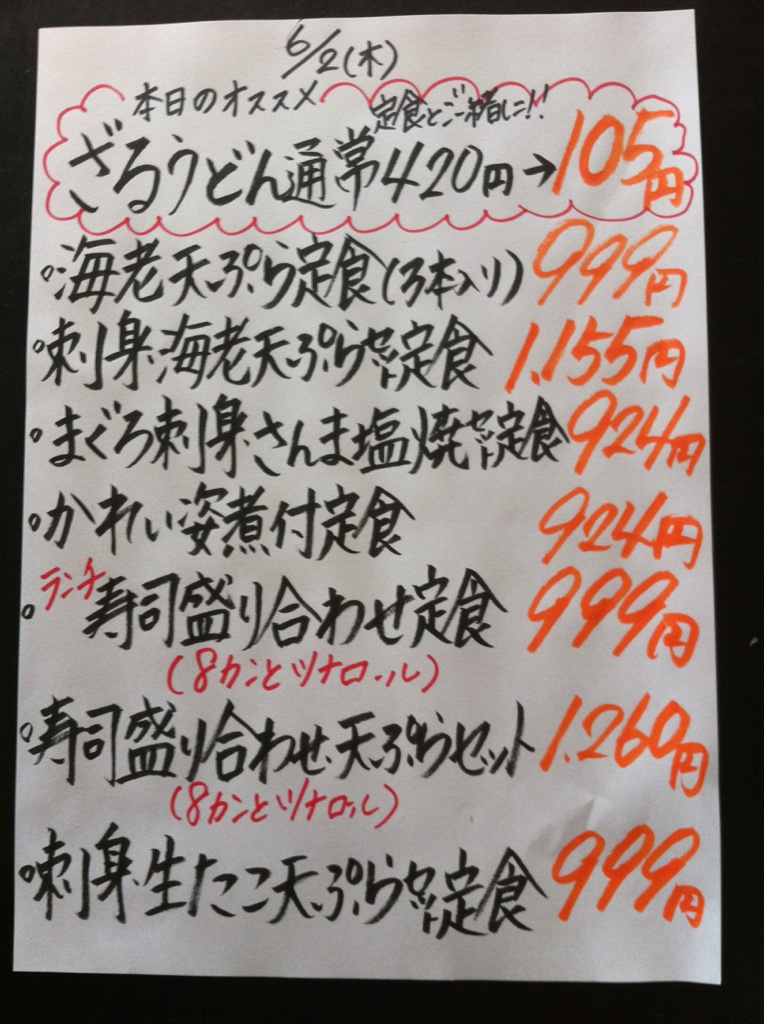 6/2(木)
本日のオススメ
定食とご一緒に!!
ざるうどん通常420円→105円
海老天ぷら定食(3本入り) 999円
刺身海老天ぷらセット定食 1.155円
まぐろ刺身さんま塩焼セット定食 924円
かれい姿煮付定食 924円
ランチ寿司盛り合わせ定食 999円
(8カンとツナロール)
寿司盛り合わせ天ぷらセット 1.260円
(8カンとツナロール)
刺身生たこ天ぷらセット定食 999円